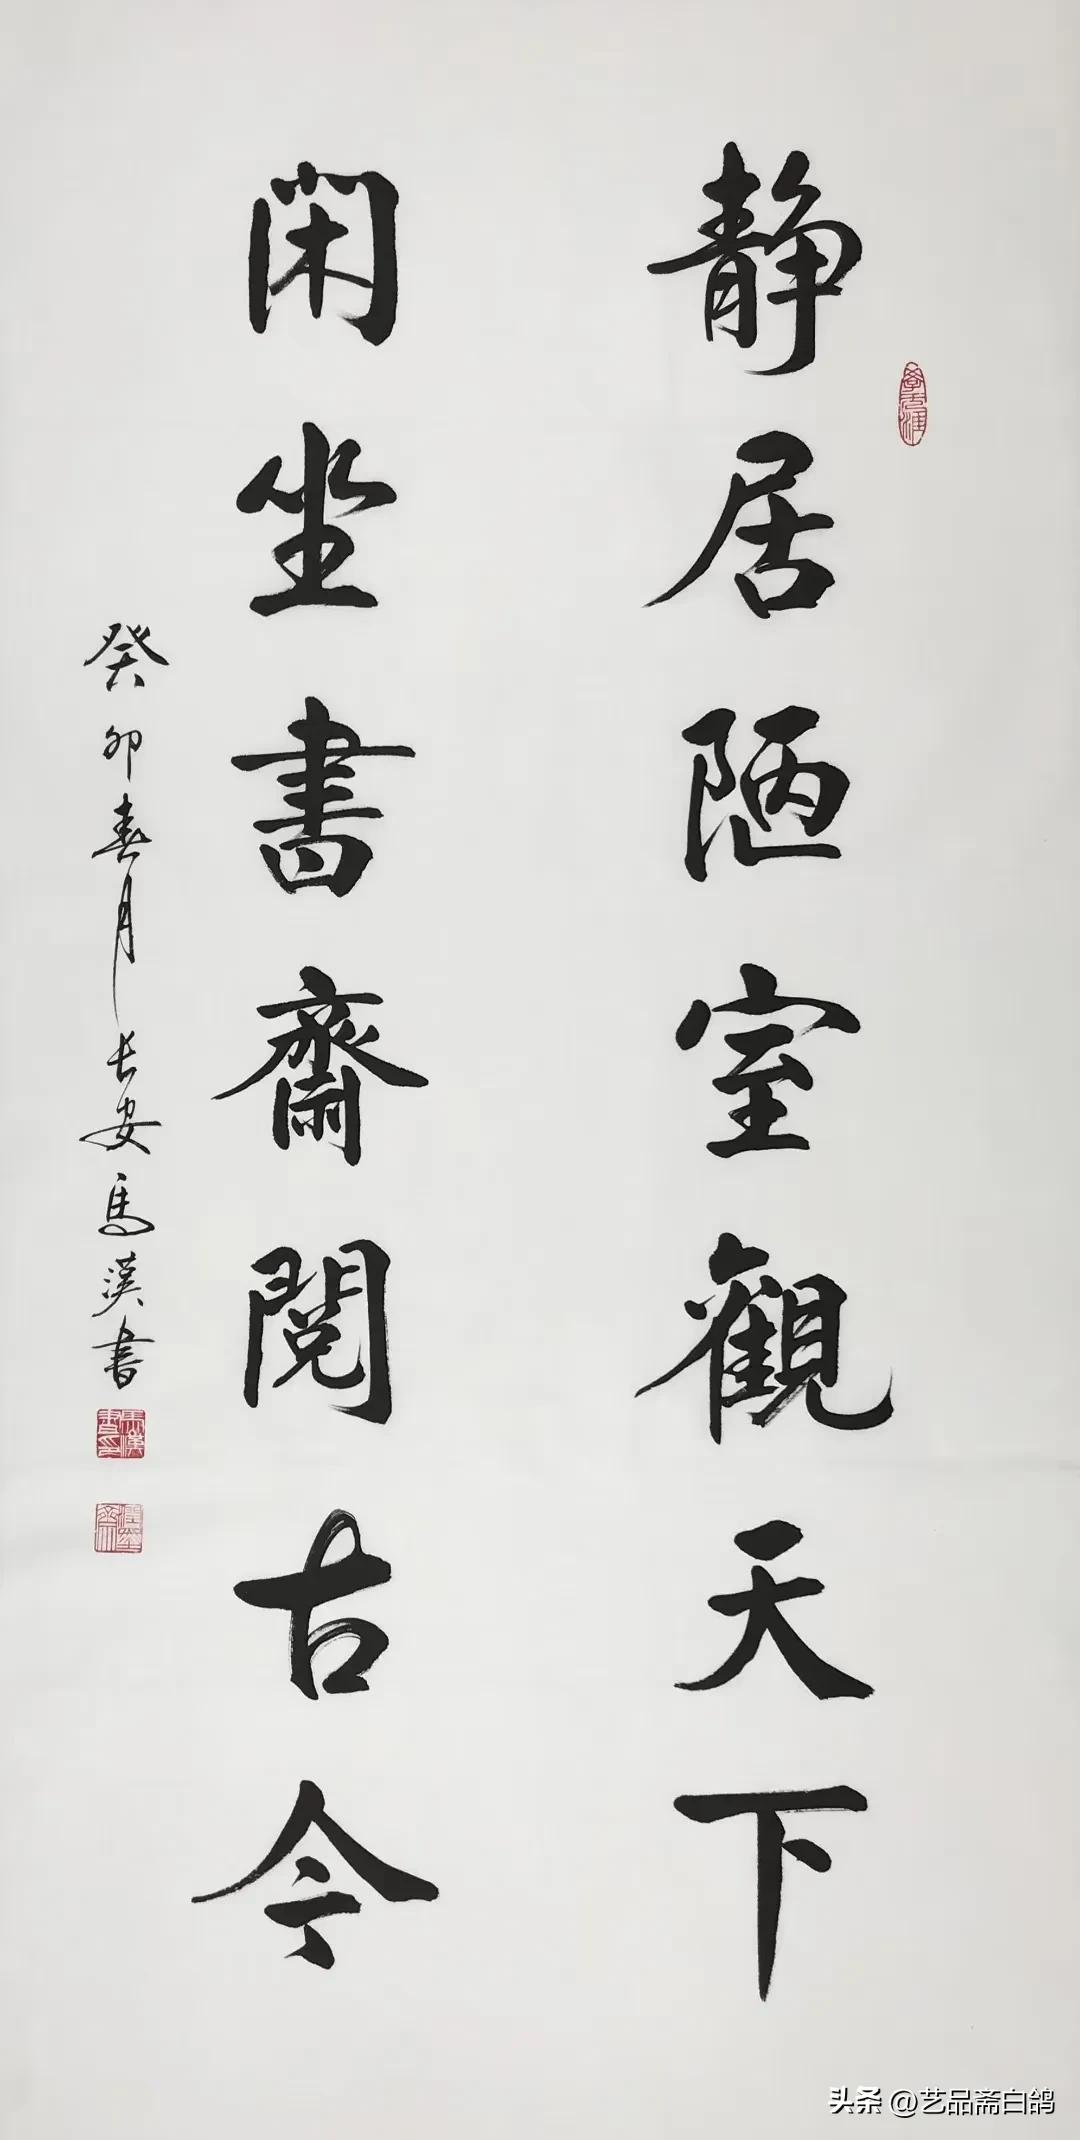 静居陋室觀天下
閑坐書齋閱古今
癸卯春月长安馬漢書
馬漢書印
潤墨齋
头条 @艺品斋白鸽